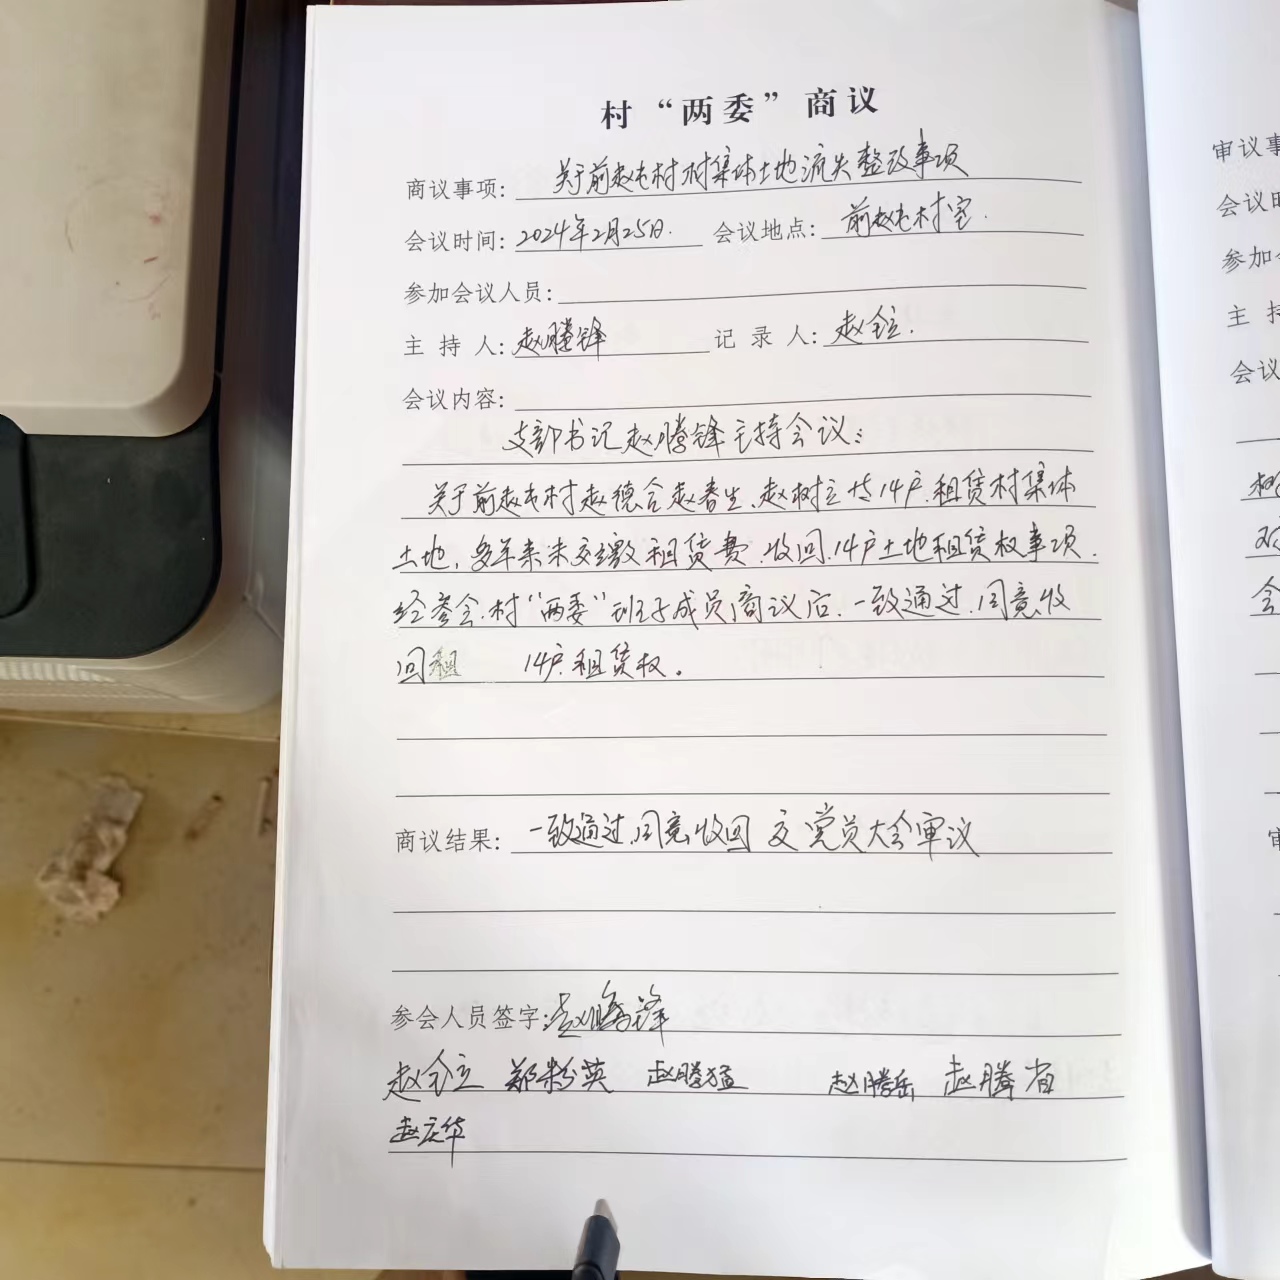 村“两委”商议
商议事项: 关于前赵屯村村集体土地流失整改事项
会议时间: 2024年2月25日. 会议地点: 前赵屯村室.
参加会议人员:
主 持 人: 赵腾锋 记 录 人: 赵全立.
会议内容:
支部书记赵腾锋主持会议:
关于前赵屯村赵德合赵春生、赵树立等14户.租赁村集体
土地,多年来未交缴租赁费.收回.14户土地租赁权事项.
经参会.村“两委”班子成员商议后.一致通过.同意收
回租 14户.租赁权。
商议结果: 一致通过.同意收回 交党员大会审议
参会人员签字: 赵腾锋
赵全立 郑粉英 赵腾猛 赵腾岳 赵腾省
赵庆华
审议事
会议时
参加会
主 持
会议